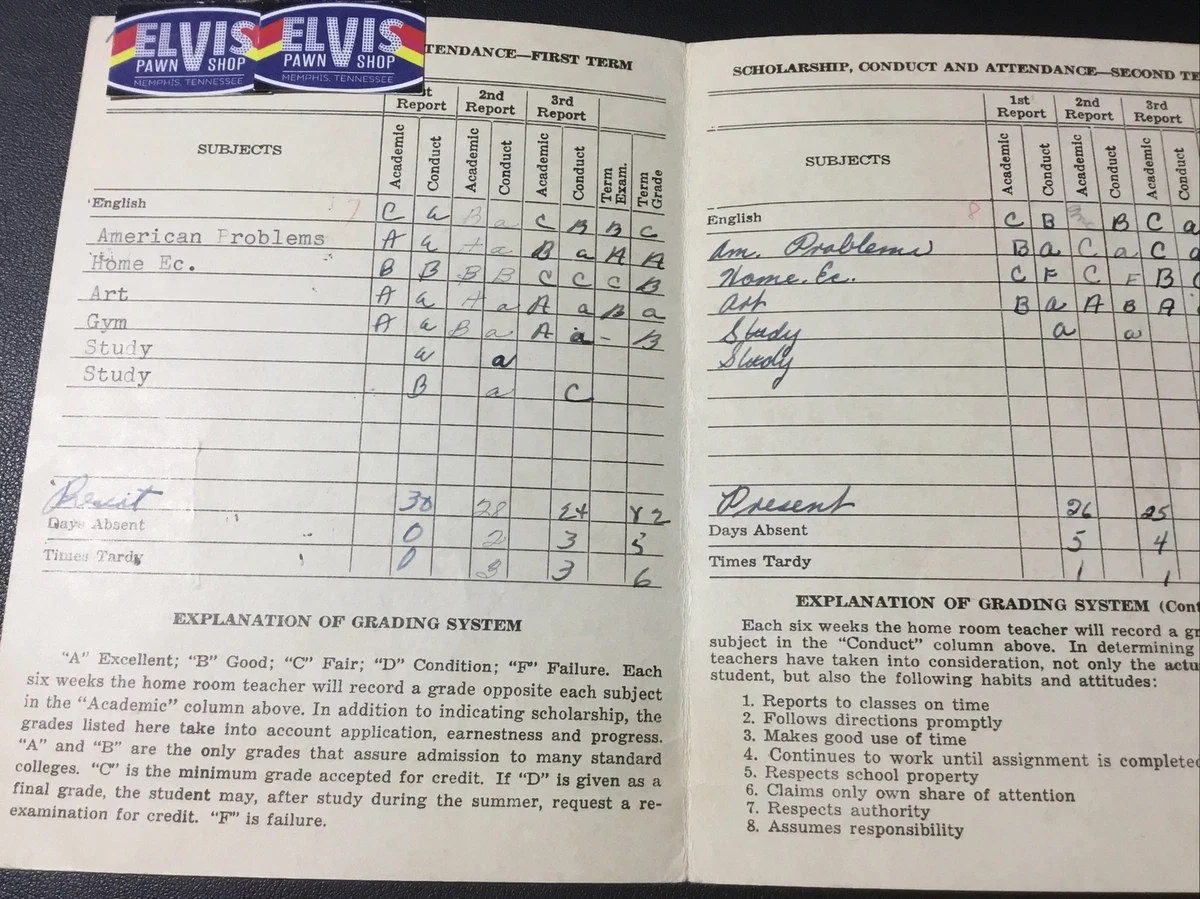 ELVIS ELVIS
PAWN SHOP PAWN SHOP
MEMPHIS, TENNESSEE MEMPHIS, TENNESSEE
TENDANCE—FIRST TERM
st Report 2nd Report 3rd Report
SUBJECTS Academic Conduct Academic Conduct Academic Conduct Term Exam. Term Grade
English 7 C a B a C B B C
American Problems A a A a B a A A
Home Ec. B B B B C C C B
Art A a A a A a B a
Gym A a B a A a - B
Study a a
Study B a C
30 28 24 82
Days Absent 0 2 3 5
Times Tardy 0 3 3 6
EXPLANATION OF GRADING SYSTEM
"A" Excellent; "B" Good; "C" Fair; "D" Condition; "F" Failure. Each
six weeks the home room teacher will record a grade opposite each subject
in the "Academic" column above. In addition to indicating scholarship, the
grades listed here take into account application, earnestness and progress.
"A" and "B" are the only grades that assure admission to many standard
colleges. "C" is the minimum grade accepted for credit. If "D" is given as a
final grade, the student may, after study during the summer, request a re-
examination for credit. "F" is failure.
SCHOLARSHIP, CONDUCT AND ATTENDANCE—SECOND TE
1st Report 2nd Report 3rd Report
SUBJECTS Academic Conduct Academic Conduct Academic Conduct
English 8 C B B C a
Am. Problems B a C a C a
Home. Ec. C F C F B C
Art B a A B A
Study a a
Study
Present 26 25
Days Absent 5 4
Times Tardy 1 1
EXPLANATION OF GRADING SYSTEM (Cont
Each six weeks the home room teacher will record a gr
subject in the "Conduct" column above. In determining
teachers have taken into consideration, not only the actu
student, but also the following habits and attitudes:
1. Reports to classes on time
2. Follows directions promptly
3. Makes good use of time
4. Continues to work until assignment is completed
5. Respects school property
6. Claims only own share of attention
7. Respects authority
8. Assumes responsibility